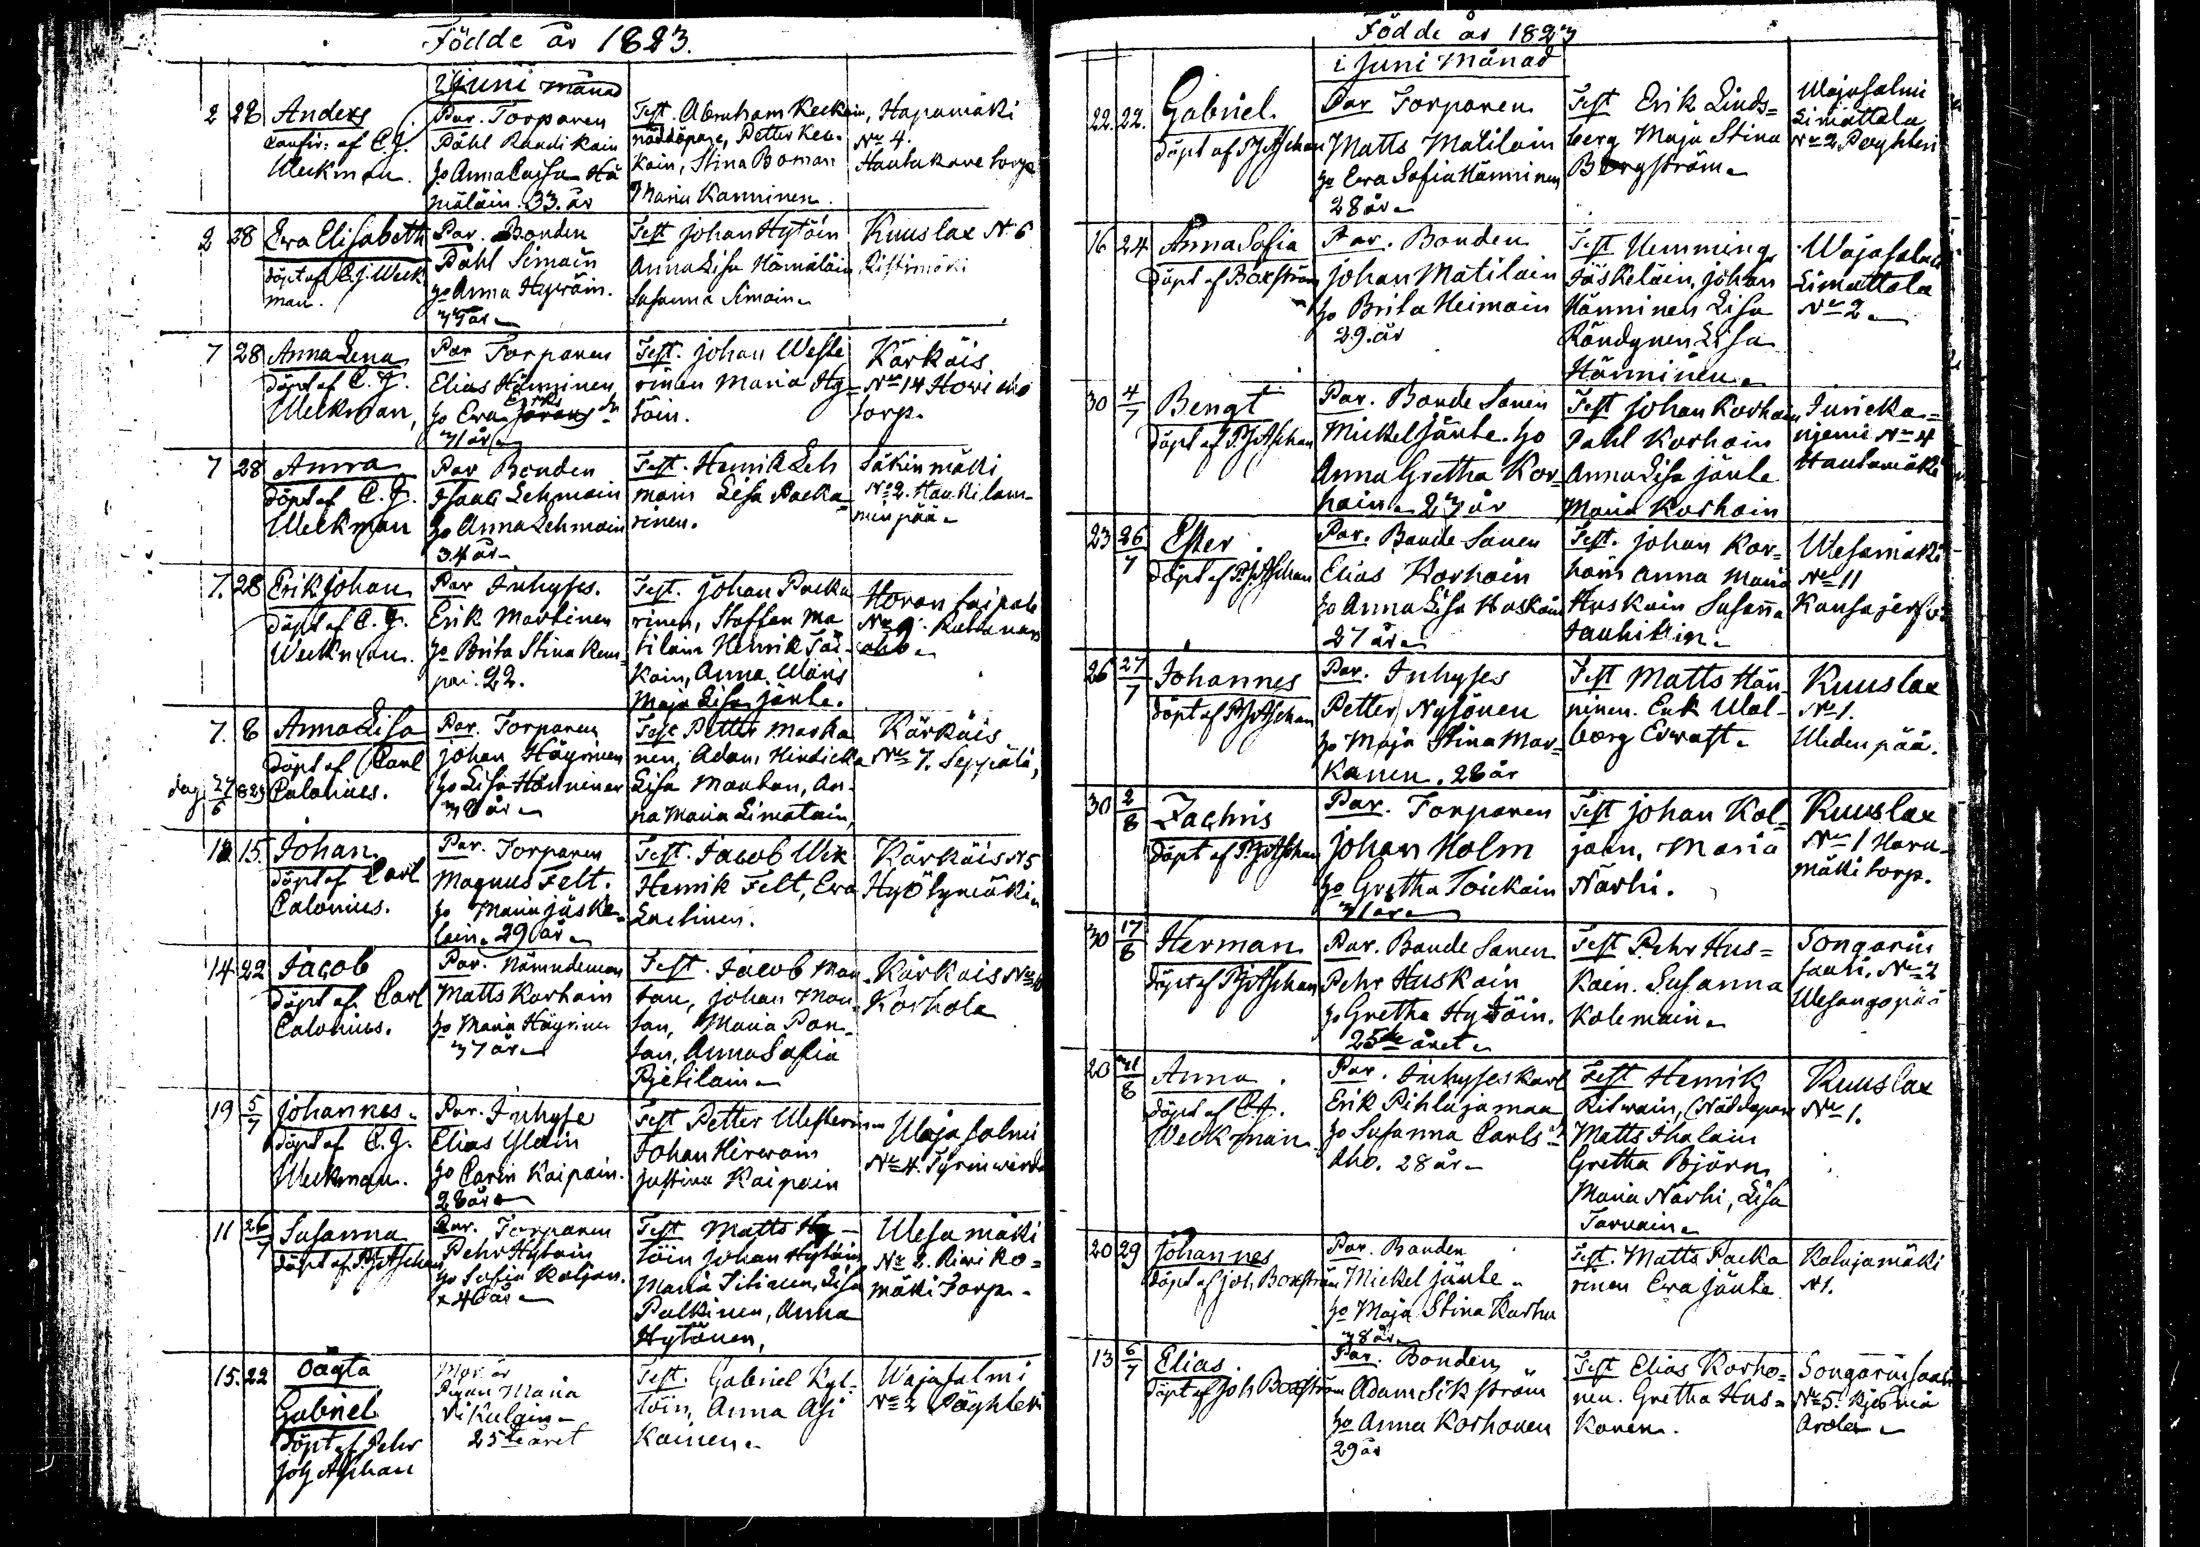 Födde år 1823.
i Juni Månad
2 28 Anders
Confir: af C.J.
Weckman.
Par. Torparen
Påhl Raudikain
ho Anna Caisa Hä
mäläin. 33. år
Test. Abraham Keckäin,
nöddöpare, Petter Kec-
käin, Stina Boman
Maria Kanninen.
Hapamäki
No 4.
Hautakane torp
2 28 Ewa Elisabeth
döpt af C.J. Weck
man.
Par. Bonden
Påhl Simain
ho Anna Hywäin.
Test Johan Hytöin
Anna Lisa Hämäläin
Susanna Simain
Kuuslax N 6
Ristimäki
7 28 Anna Lena
döpt af C. J.
Weckman,
Par Torparen
Elias Hänninen
ho Ewa
31 år
Test. Johan Weste
rinen Maria Hy-
töin.
Kärkäis
No 14 Howi aho
torp.
7 28 Anna
döpt af C. J.
Weckman
Par Bonden
Isaac Lehmain
ho Anna Lehmain
34 år
Test. Henrik Leh
main Lisa Packa-
rinen.
Säkinmäki
No 2. Haukilam-
minpää
7. 28 Erik Johan
döpt af C. J.
Weckman.
Par Inhyses.
Erik Martinen
ho Brita Stina Kem
pai. 22.
Test. Johan Packa
rinen, Staffan Ma
tilain Henrik Täi-
käin, Anna Wänis
Maja Lisa Jänte.
No 9.
7. 8 Anna Lisa
döpt af Carl
Calonius.
dag 27/6 823
Par. Torparen
Johan Häyrinen
ho Lisa Hänninen
30 år
Test Petter Marka
nen, Adam Hindicka
Lisa Mantan, An-
na Maria Limatain,
Kärkäis
No 7. Seppälä,
12 15. Johan
döpt af Carl
Calonius.
Par. Torparen
Magnus Felt.
ho Maria Jäske-
läin. 29 år
Test. Jacob Wik
Henrik Felt, Ewa
Laetinen.
Kärkäis N 5
Hyötymäki
14 22 Jacob
döpt af Carl
Calonius.
Par. Nämndeman
Matts Korhain
ho Maria Häyrinen
37 år
Test. Jacob Man
tan, Johan Man-
tan, Maria Pan-
tan, Anna Safia
Pjetilain
Kärkäis No
Korhola
19 5/7 Johannes.
döpt af C. J.
Weckman.
Par. Inhyse
Elias Ylain
ho Carin Kaipain.
28 år
Test Petter Westerinen
Johan Hirwain
Justina Kaipain
Wajasalmi
No 4. Tyrinwirda
11 26/7 Susanna
döpt af P. J. Aschan
Par. Torparen
Pehr Hytöin
ho Sofia Koljan.
40 år
Test Matts Hy-
töin Johan Hytöin
Maria Titinen, Lisa
Pulkinen, Anna
Hytönen,
Wesamäki
No 2. Riwiko-
mäki Torp.
15. 22 Oägta
Gabriel
Döpt af Pehr
Joh Aschan
Mor är
Pigan Maria
Nikulain
25te året
Test. Gabriel Kyl-
löin, Anna Asi
kainen
Wajasalmi
No 2 Päyhteri
Födde år 1823
i Juni Månad
22. 22. Gabriel
döpt af P. J. Aschan
Par Torparen
Matts Matilain
ho Ewa Sofia Hänninen
28 år
Test Erik Linds-
berg Maja Stina
Bergström
Wajasalmi
Limattala
No 2 Payhteri
16 24 Anna Sofia
döpt af Boxström
Par. Bonden
Johan Matilain
ho Brita Heimain
29. år
Test Hemming
Jäskeläin, Johan
Hänninen Lisa
Röndynen Lisa
Hänninen
Wajasalmi
Limattala
No 2
30 4/7 Bengt
döpt af P. J. Aschan
Par. Bonde Sonen
Mickel Jänte. ho
Anna Gretha Kor-
hain 23 år
Test Johan Korhain
Pahl Korhain
Anna Lisa Jänte
Maria Korhain
Juricka-
njemi No 4
Hautamäki
23 26/7 Ester.
döpt af P. J. Aschan
Par. Bonde Sonen
Elias Korhain
ho Anna Lisa Huskain
27 år
Test. Johan Kor-
hain Anna Maria
Huskain Susanna
Wesamäki
No 11
26 27/7 Johannes
döpt af P. J. Aschan
Par. Inhyses
Petter Nysönen
ho Maja Stina Mar-
kanen. 28 år
Test Matts Hän-
ninen. Erik Wal-
borg Ewast
Kuuslax
No 1.
Weden pää.
30 2/8 Zachris
döpt af P. J. Aschan
Par. Torparen
Johan Holm
ho Gretha Toickain
31 år
Test Johan Kol-
jain, Maria
Närhi.
Kuuslax
No 1 Haru-
mäki torp.
30 17/8 Herman
döpt af P. J. Aschan
Par. Bonde Sonen
Pehr Huskain
ho Gretha Hytöin.
25te året
Test Pehr Hus-
kain. Susanna
Kolemain
Songarin
saari, No 2
Wesangopää
20 31/8 Anna.
döpt af C. J.
Weckman
Par. Inhyses Karl
Erik Pihlajamaa
ho Susanna Carlsdr
Aho. 28 år
Test Henrik
Ritwain, (Nöddöpare
Matts Ihalain
Gretha Björn,
Maria Närhi, Lisa
Tarvain
Kuuslax
No 1.
20 29 Johannes
döpt af Joh Boxström
Par. Bonden
Mickel Jänte
ho Maja Stina Karhu
38 år
Test. Matts Packa
rinen Ewa Jänte
Kalajamäki
N 1.
13 6/7 Elias.
döpt af Joh Boxström
Par. Bonden
Adam Sikström
ho Anna Korhonen
29 år
Test Elias Korho-
nen. Gretha Hus-
konen.
Songarinsaari
No 5.